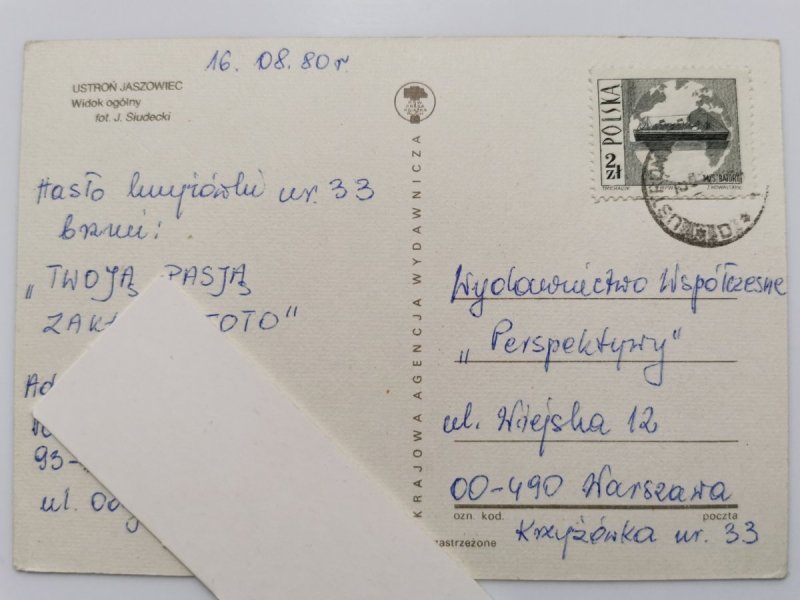 16. 08. 80 r.
USTROŃ JASZOWIEC
Widok ogólny
fot. J. Siudecki
Hasło krzyżówki nr. 33
brzmi:
„TWOJĄ PASJĄ
ZAK TOTO"
Ad
93-
ul.
KRAJOWA AGENCJA WYDAWNICZA
zastrzeżone
POLSKA
2 zł
M/S "BATORY"
Wydawnictwo Współczesne
„Perspektywy"
ul. Wiejska 12
00-490 Warszawa
ozn. kod. poczta
Krzyżówka nr. 33